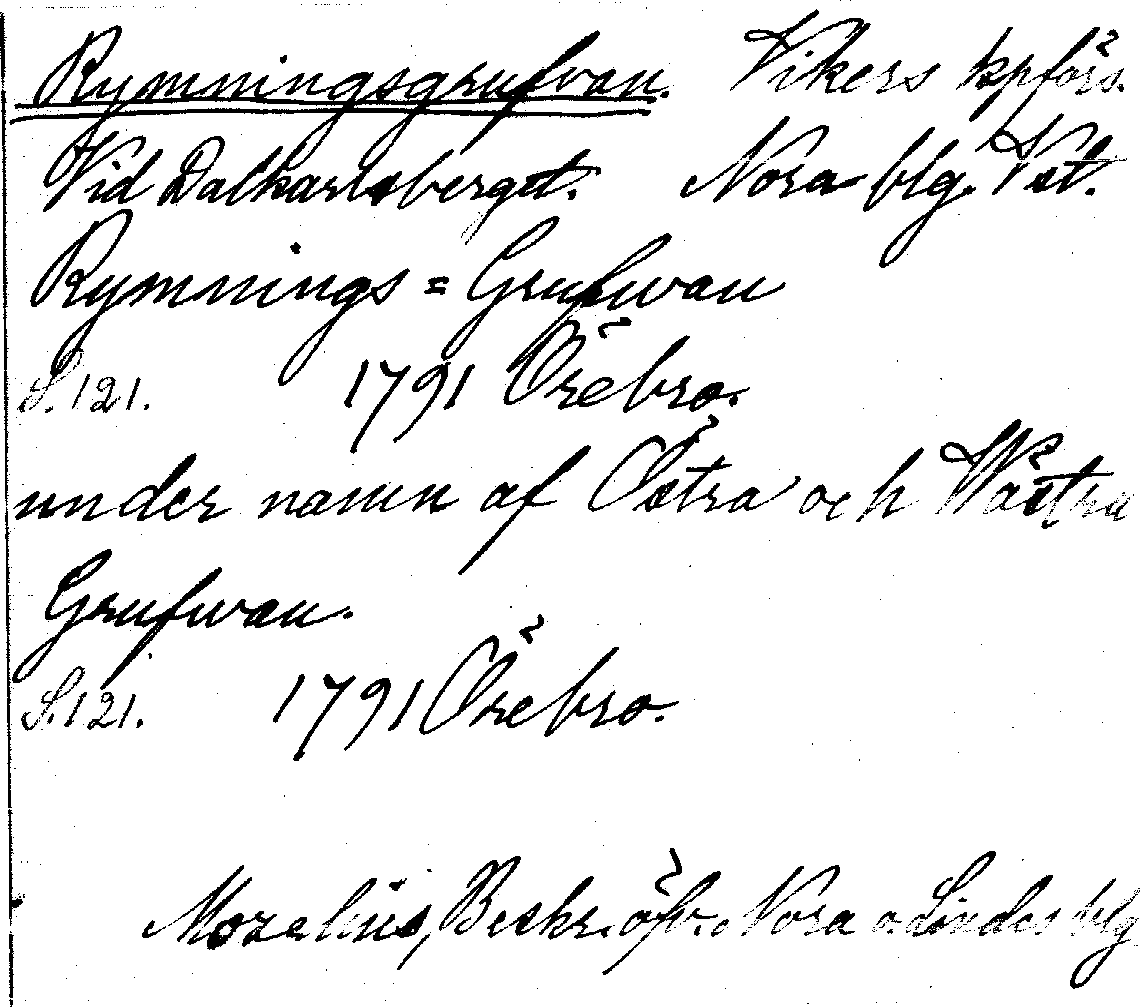 Rymningsgrufvan. Vikers kpförs.
Vid Dalkarlsberget. Nora blg. Vst.
Rymnings=Grufwan
S. 121. 1791 Örebro.
under namn af Östra och Wästra
Grufwan.
S. 121. 1791 Örebro.
Beskr. öfv. Nora o. Lindes blg